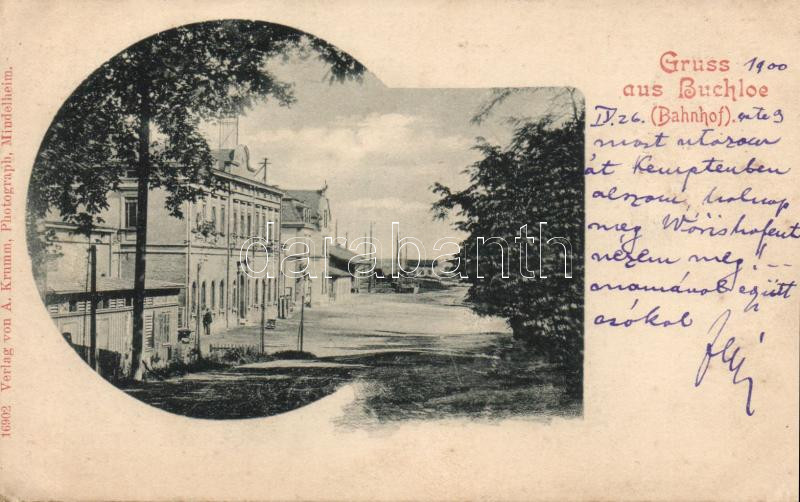 Gruss 1900
aus Buchloe
IV.26. (Bahnhof). este 9
most utazom
át Kemptenben
alszom, holnap
meg Wörishofent
nézem meg, —
anamával együtt
csókol
Verlag von A. Krumm, Photograph, Mindelheim.
16902
darabanth